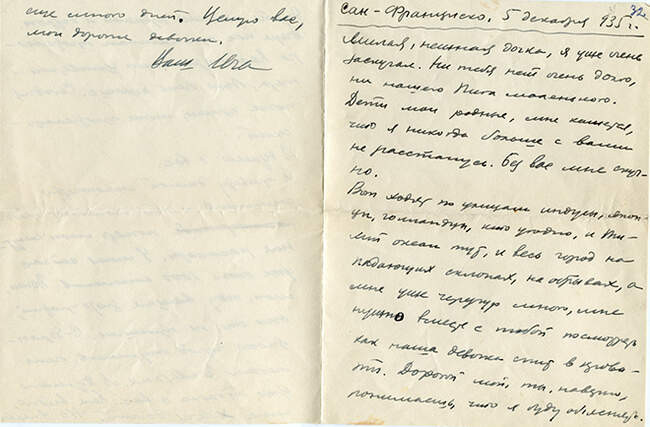 еще много дней. Целую вас,
мои дорогие девочки.
Ваш Иля
32
Сан-Франциско, 5 декабря 935 г.
Милая, нежная дочка, я уже очень
заскучал. Ни тебя нет очень долго,
ни нашего Пига маленького.
Дети мои родные, мне кажется,
что я никогда больше с вами
не расстанусь. Без вас мне скуч-
но.
Вот ходят по улицам индусы, япон-
цы, голландцы, кто угодно, и Ти-
хий океан тут, и весь город на
падающих склонах, на обрывах, а
мне уже чересчур много, мне
нужно вместе с тобой посмотреть
как наша девочка спит в крова-
ти. Дорогой мой, ты, наверно,
понимаешь, что я буду объяснять.